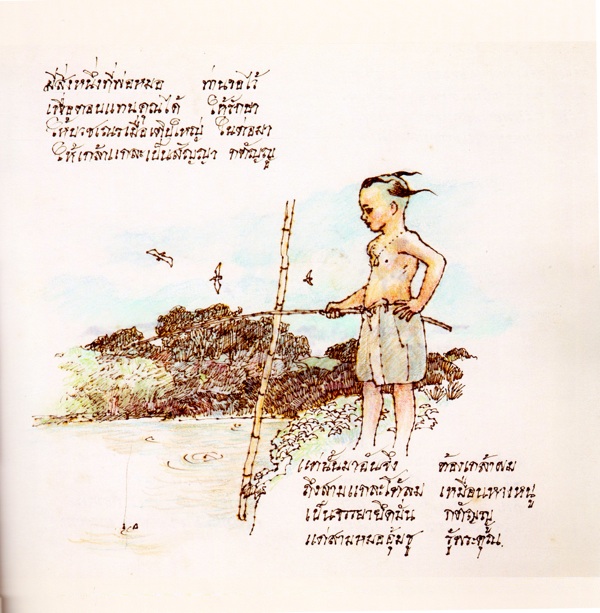 มีสิ่งหนึ่งที่พ่อหมอ ท่านขอไว้
เพื่อตอบแทนคุณได้ ให้รักษา
ให้บวชเณรเมื่อเติบใหญ่ ในต่อมา
ให้เกล้าแกละเป็นสัญญา กตัญญู
แต่นั้นมาฉันจึง ต้องเกล้าผม
ถึงสามแกละโต้ลม เหมือนหางหนู
เป็นจรรยายึดมั่น กตัญญู
แด่สามหมออุ้มชู รู้พระคุณ.